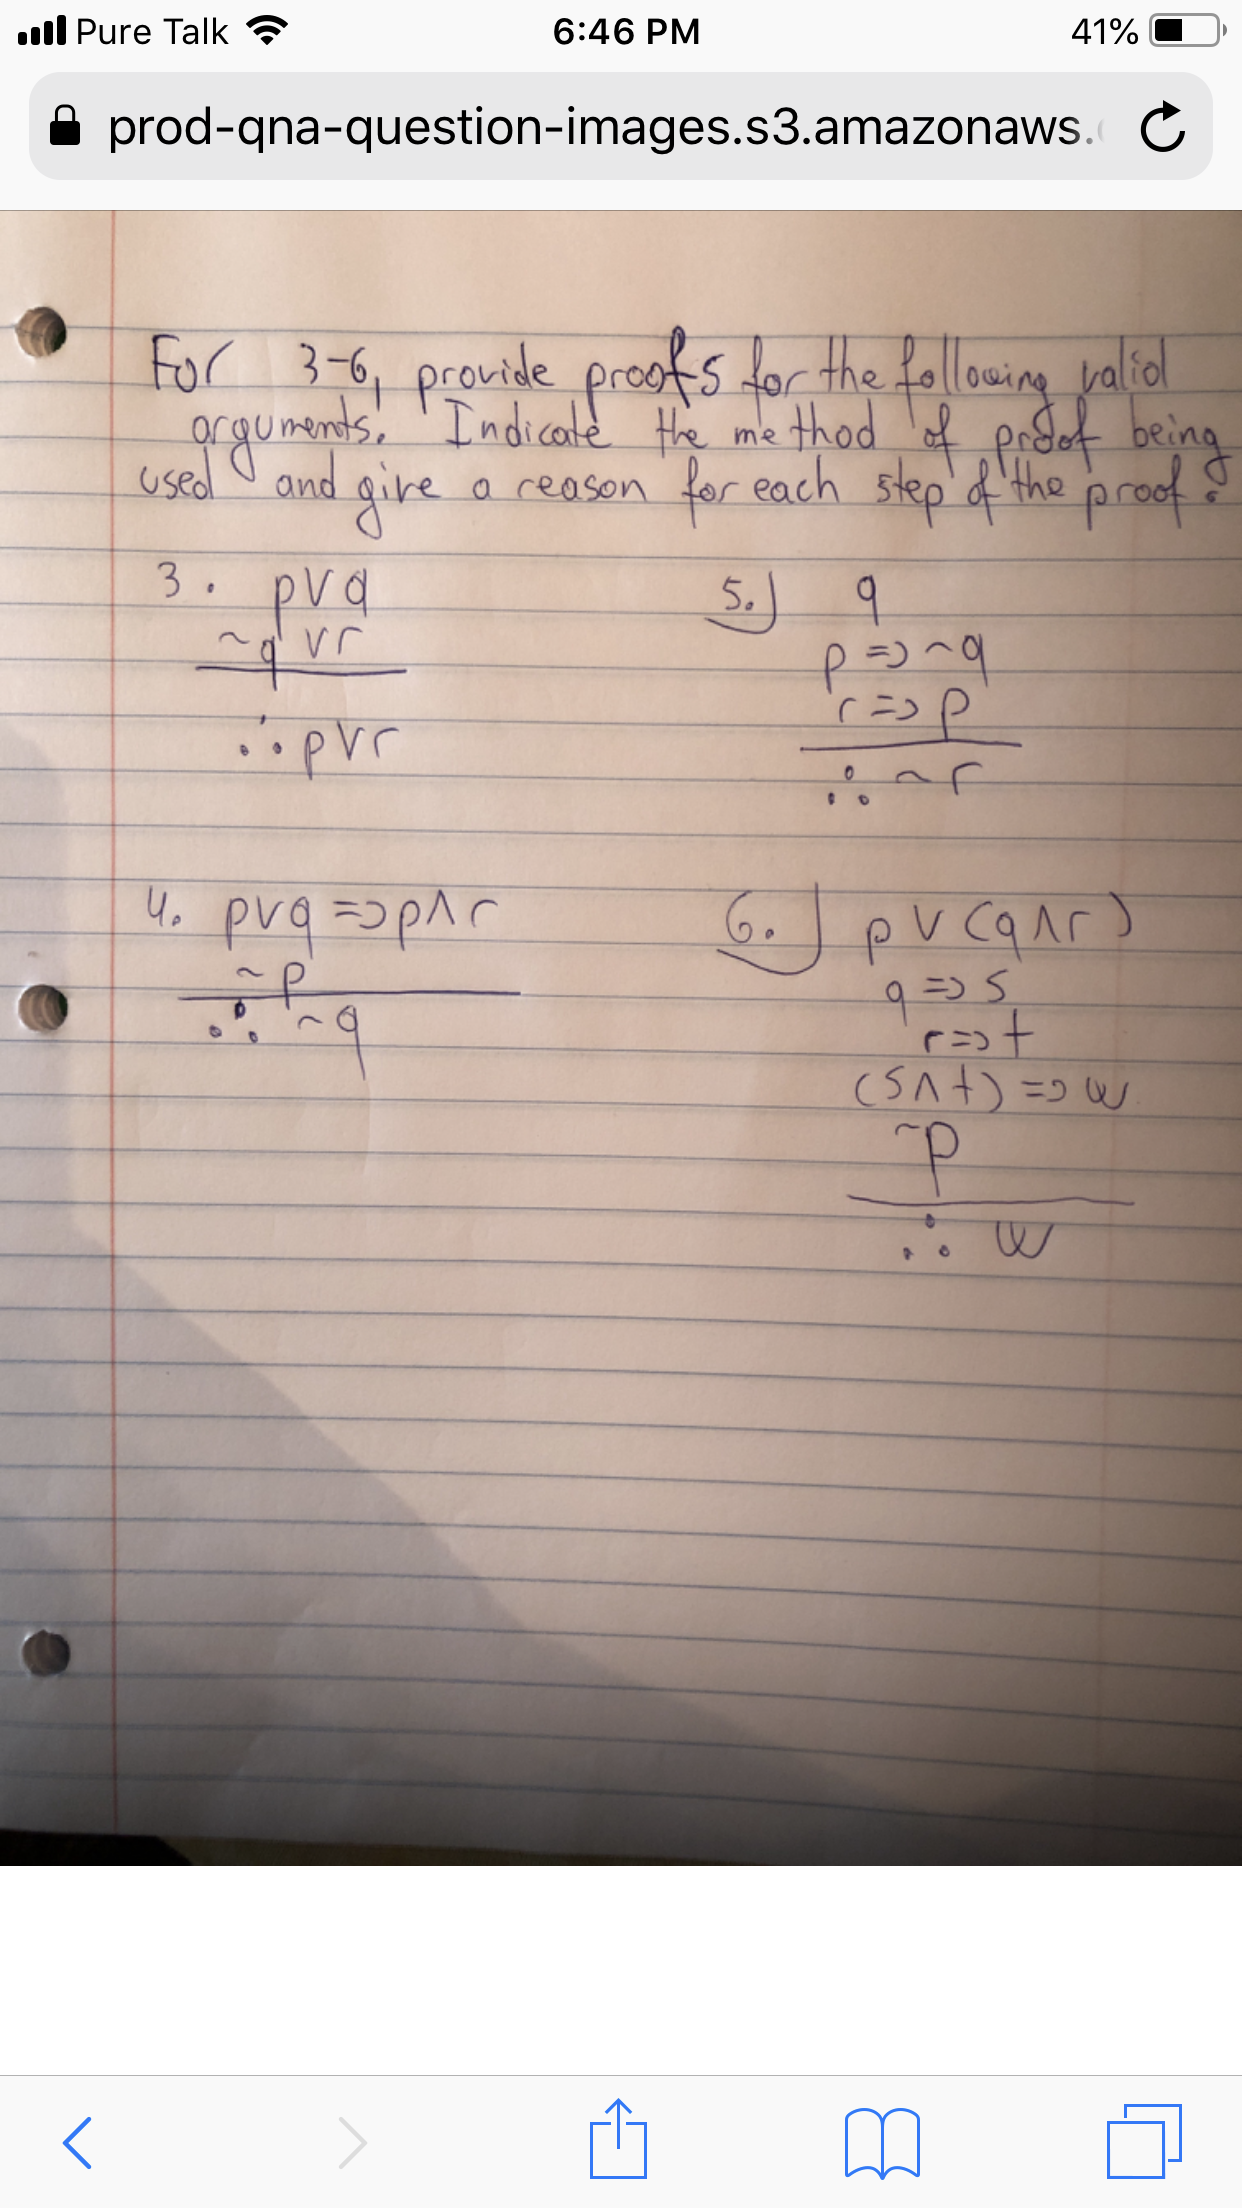 Pure Talk 6:46 PM 41%
prod-qna-question-images.s3.amazonaws.
For 3-6, provide proofs for the following valid
arguments. Indicate the method of proof being
used and give a reason for each step of the proof.
3. p∨q
~q ∨ r
∴ p∨r
4. p∨q => p∧r
~p
∴ ~q
5.) q
p => ~q
r => p
∴ ~r
6.) p ∨ (q∧r)
q => s
r => t
(s∧t) => w
~p
∴ w